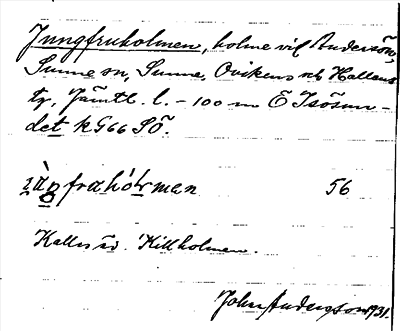 Jungfruholmen, holme vid Andersön,
Sunne sn, Sunne, Ovikens och Hallens
tg, Jämtl. l. - 100 m Ö Isösun-
det k G66 SÖ.
frahó̀rman 56
Kallas äv. Killholmen.
John Andersson 1931.